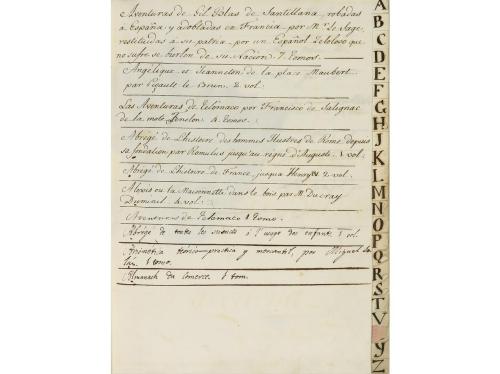 Aventuras de Gil Blas de Santillana, robadas
a España, y adobladas en Francia por Mr. le Sage
restituidas a su patria, por un Español Zeloso que
no sufre se burlen de su Nacion 7 tomos.
Angelique et Jeanneton de la place Maubert
par Pigault le Brun. 2 vol.
Las Aventuras de Telemaco por Francisco de Salignac
de la mote Fenelon 4 tomos.
Abrégé de L'histoire des hommes Illustres de Rome depuis
sa fondation par Romulus jusqu'au regne d'Auguste. 1 vol.
Abrégé de L'histoire de France, jusqua Henry 2 vol.
Alexis ou la Maisonnette dans le bois par Mr. Ducray
Duminil. 4 vol.
Aventuras de Telemaco 1 tomo.
Abrégé de toutes les sciences à l'usage des enfants 1 vol.
Arismetica teórico-practica y mercantil, por Miguel
1 tomo.
Almanach du comerce. 1 tom.
A
B
C
D
E
F
G
H
J
K
L
M
N
O
P
Q
R
S
T
V
ý
Z